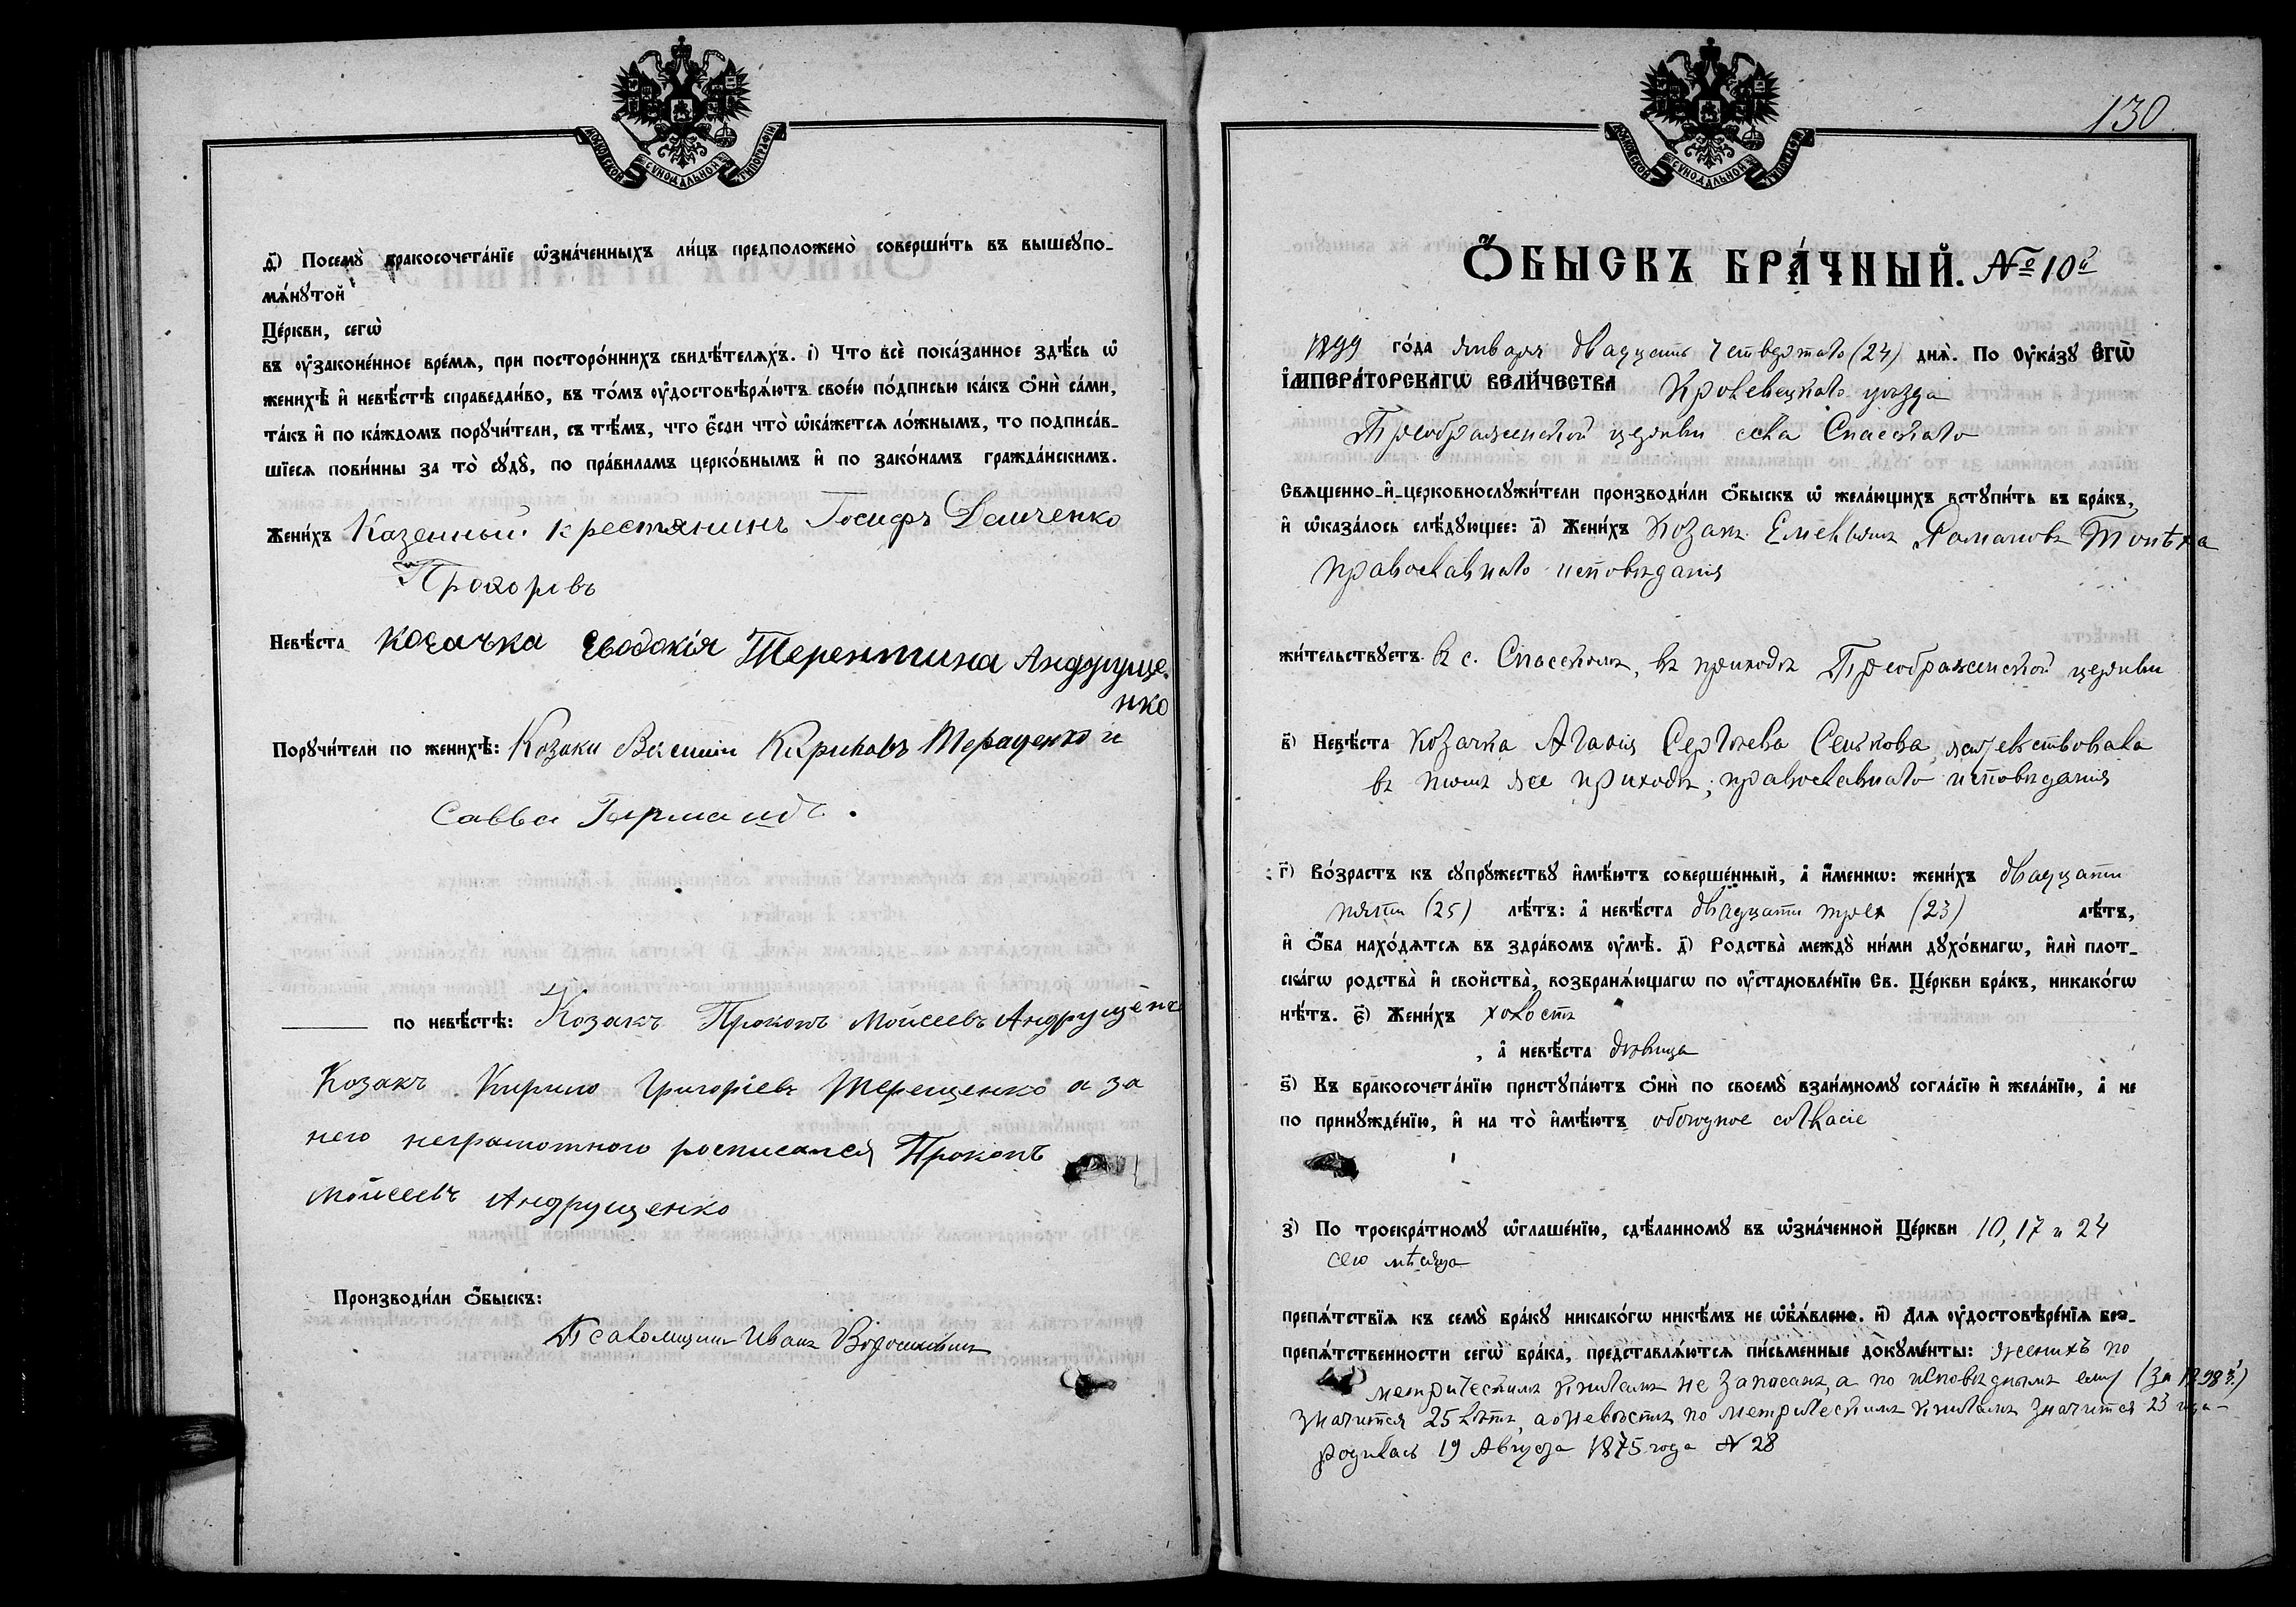 МОСКОВСКОЙ СѴНОДАЛЬНОЙ ТИПОГРАФІИ
д҃) Посемꙋ̀ бракосочета́нїе ѡ҆зна́ченныхъ ли́цъ предположено̀ соверши́ть въ вышеꙋпо-
мѧ́нꙋтой
Це́ркви, сегѡ̀
въ ᲂу҆законе́нное вре́мѧ, при посторо́ннихъ свидѣ́телѧхъ. і҃) Что̀ всѐ пока́занное здѣ́сь ѡ҆
женихѣ̀ и҆ невѣ́стѣ справедли́во, въ то́мъ ᲂу҆достовѣрѧ́ютъ свое́ю по́дписью ка́къ ѻ҆нѝ са́ми,
та́къ и҆ по ка́ждомъ порꙋчи́тели, съ тѣ́мъ, что є҆́сли что̀ ѡ҆ка́жетсѧ ло́жнымъ, то подписа́в-
шїесѧ пови́нны за то̀ сꙋдꙋ̀, по пра́виламъ церко́внымъ и҆ по зако́намъ гражда́нскимъ.
Жени́хъ Казенный крестянинъ Іосифъ Демченко
Прохоровъ
Невѣ́ста козачка Евдокія Терентина Андруще-
нко
Порꙋчи́тели по женихѣ̀: Козаки Василій Кириловъ Терещенко и
Савва
по невѣ́стѣ: Козакъ Прокопъ Мойсеевъ Андрущенко
Козакъ Кирило Григоріевъ Терещенко а за
него неграмотного росписался Прокопъ
Мойсеевъ Андрущенко
Производи́ли ѻ҆́быскъ:
Псаломщикъ Иванъ
130
МОСКОВСКОЙ СѴНОДАЛЬНОЙ ТИПОГРАФІИ
Ѻ҆́БЫСКЪ БРА́ЧНЫЙ. № 10й
1899 го́да января двадцать четвертаго (24) днѧ̀. По ᲂу҆ка́зꙋ Е҆гѡ̀
І҆МПЕРА́ТОРСКАГѠ ВЕЛИ́ЧЕСТВА Кролевецкаго уѣзда
Преображенской церкви села Спасскаго
Свѧщенно-и҆-церковнослꙋжи́тели производи́ли ѻ҆́быскъ ѡ҆ жела́ющихъ встꙋпи́ть въ бра́къ,
и҆ ѡ҆каза́лось слѣ́дꙋющее: а҃) Жени́хъ Козакъ Емельянъ Романовъ
православнаго исповѣданія
жи́тельствꙋетъ въ с. Спасскомъ, въ приходѣ Преображенской церкви
в҃) Невѣ́ста козачка Агафія Сергѣева Сенькова, жительствовала
въ томъ же приходѣ, православнаго исповѣданія
г҃) Во́зрастъ къ сꙋпрꙋ́жествꙋ и҆мѣ́ютъ соверше́нный, а҆ и҆́меннѡ: жени́хъ двадцати
пяти (25) лѣ́тъ: а҆ невѣ́ста двадцати трех (23) лѣ́тъ,
и҆ ѻ҆́ба нахо́дѧтсѧ въ здра́вомъ ᲂу҆мѣ̀. д҃) Родства̀ междꙋ̀ ни́ми дꙋхо́внагѡ, и҆лѝ плот-
ска́гѡ родства̀ и҆ свойства̀, возбранѧ́ющагѡ по ᲂу҆становле́нїю Св. Це́ркви бра́къ, никако́гѡ
нѣ́тъ. є҃) Жени́хъ холостъ
, а҆ невѣ́ста дѣвица
ѕ҃) Къ бракосочета́нїю пристꙋпа́ютъ ѻ҆нѝ по своемꙋ̀ взаи́мномꙋ согла́сїю и҆ жела́нїю, а҆ не
по принꙋжде́нїю, и҆ на то̀ и҆мѣ́ютъ обоюдное согласіе
з҃) По троекра́тномꙋ ѡ҆глаше́нїю, сдѣ́ланномꙋ въ ѡ҆зна́ченной Це́ркви 10, 17 и 24
сего мѣсяца
препѧ́тствїѧ къ семꙋ̀ бра́кꙋ никако́гѡ никѣ́мъ не ѡ҆б̾ѧ́влено. и҃) Длѧ ᲂу҆достовѣре́нїѧ без-
препѧ́тственности сегѡ̀ бра́ка, представлѧ́ютсѧ пи́сьменные докꙋме́нты: женихъ по
метрическимъ книгамъ не записанъ, а по исповѣднымъ (за 1898 г.)
значится 25 лѣтъ, а о невѣстѣ по метрическимъ книгамъ значится 23 года -
родилась 19 Августа 1875 года № 28